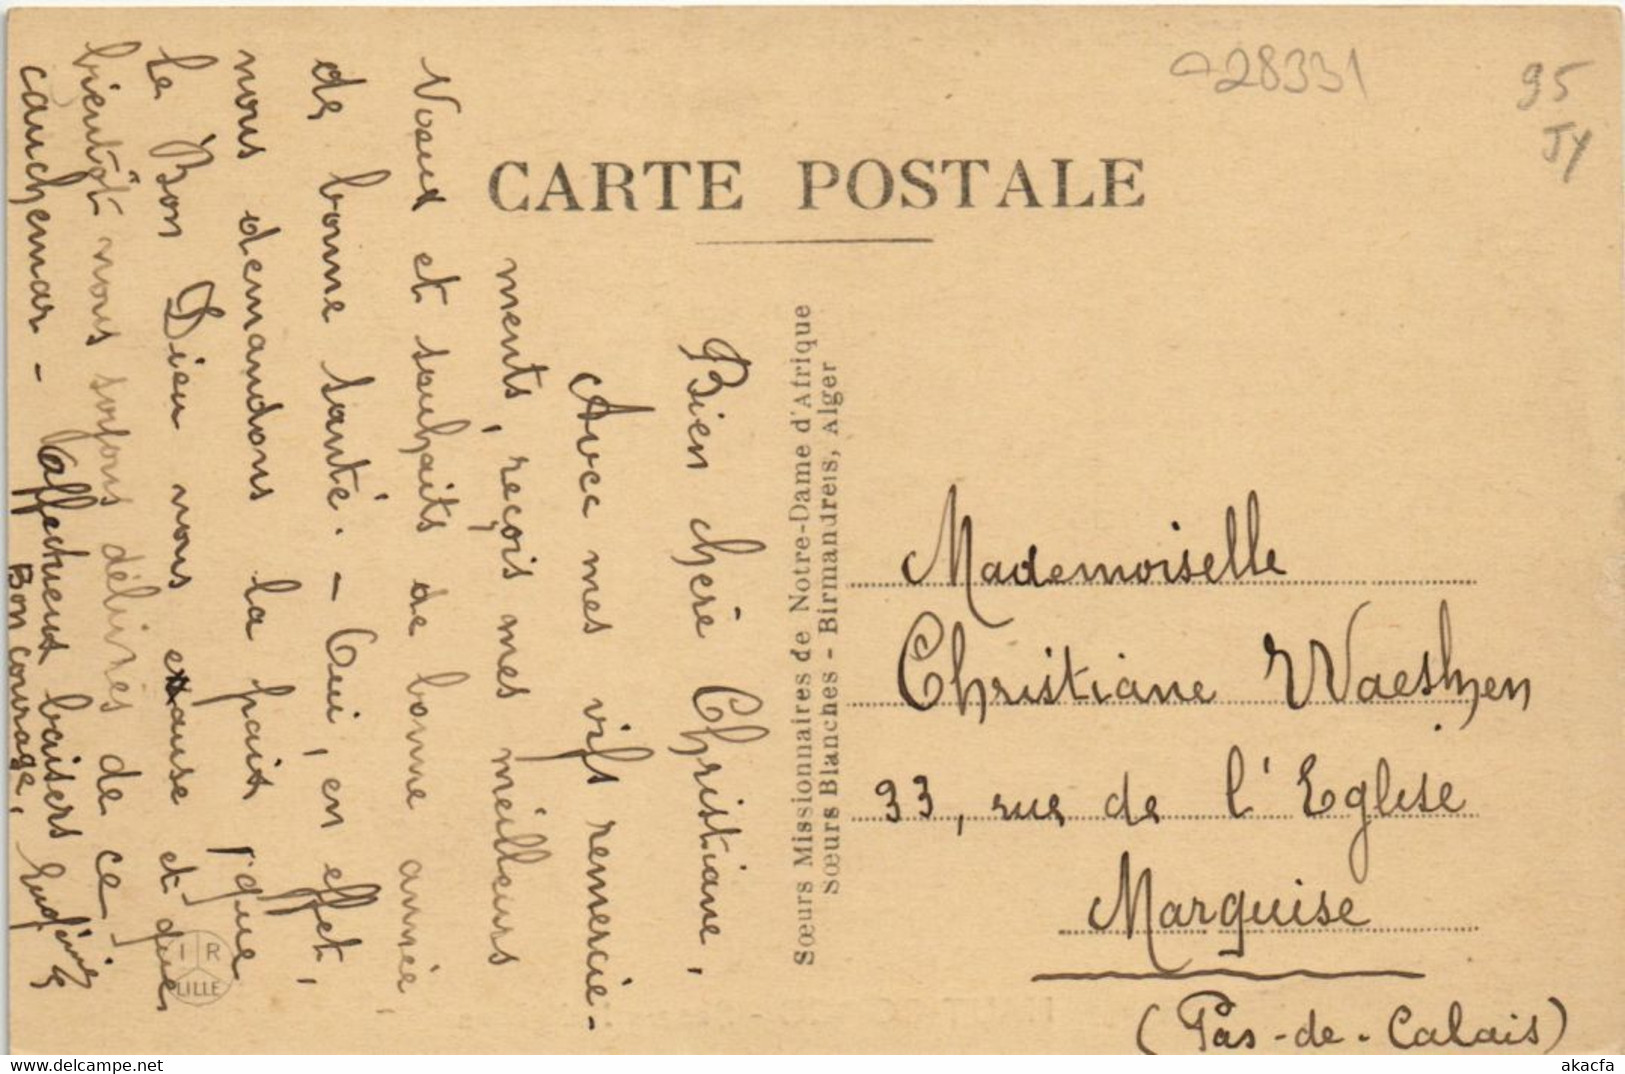 a28331
95
JY
CARTE POSTALE
Sœurs Missionnaires de Notre-Dame d'Afrique
Sœurs Blanches - Birmandreis, Alger
Bien chère Christiane,
Avec mes vifs remercie-
ments, reçois mes meilleurs
Voeux et souhaits de bonne année
de bonne santé. - Oui, en effet,
nous demandons la paix, que
le Bon Dieu nous exause et que
bientôt nous soyons délivrés de ce
cauchemar - Affectueux baisers
Bon courage,
Mademoiselle
Christiane Waeshen
93, rue de l'Eglise
Marquise
(Pas-de-Calais)
I R
LILLE
akacfa